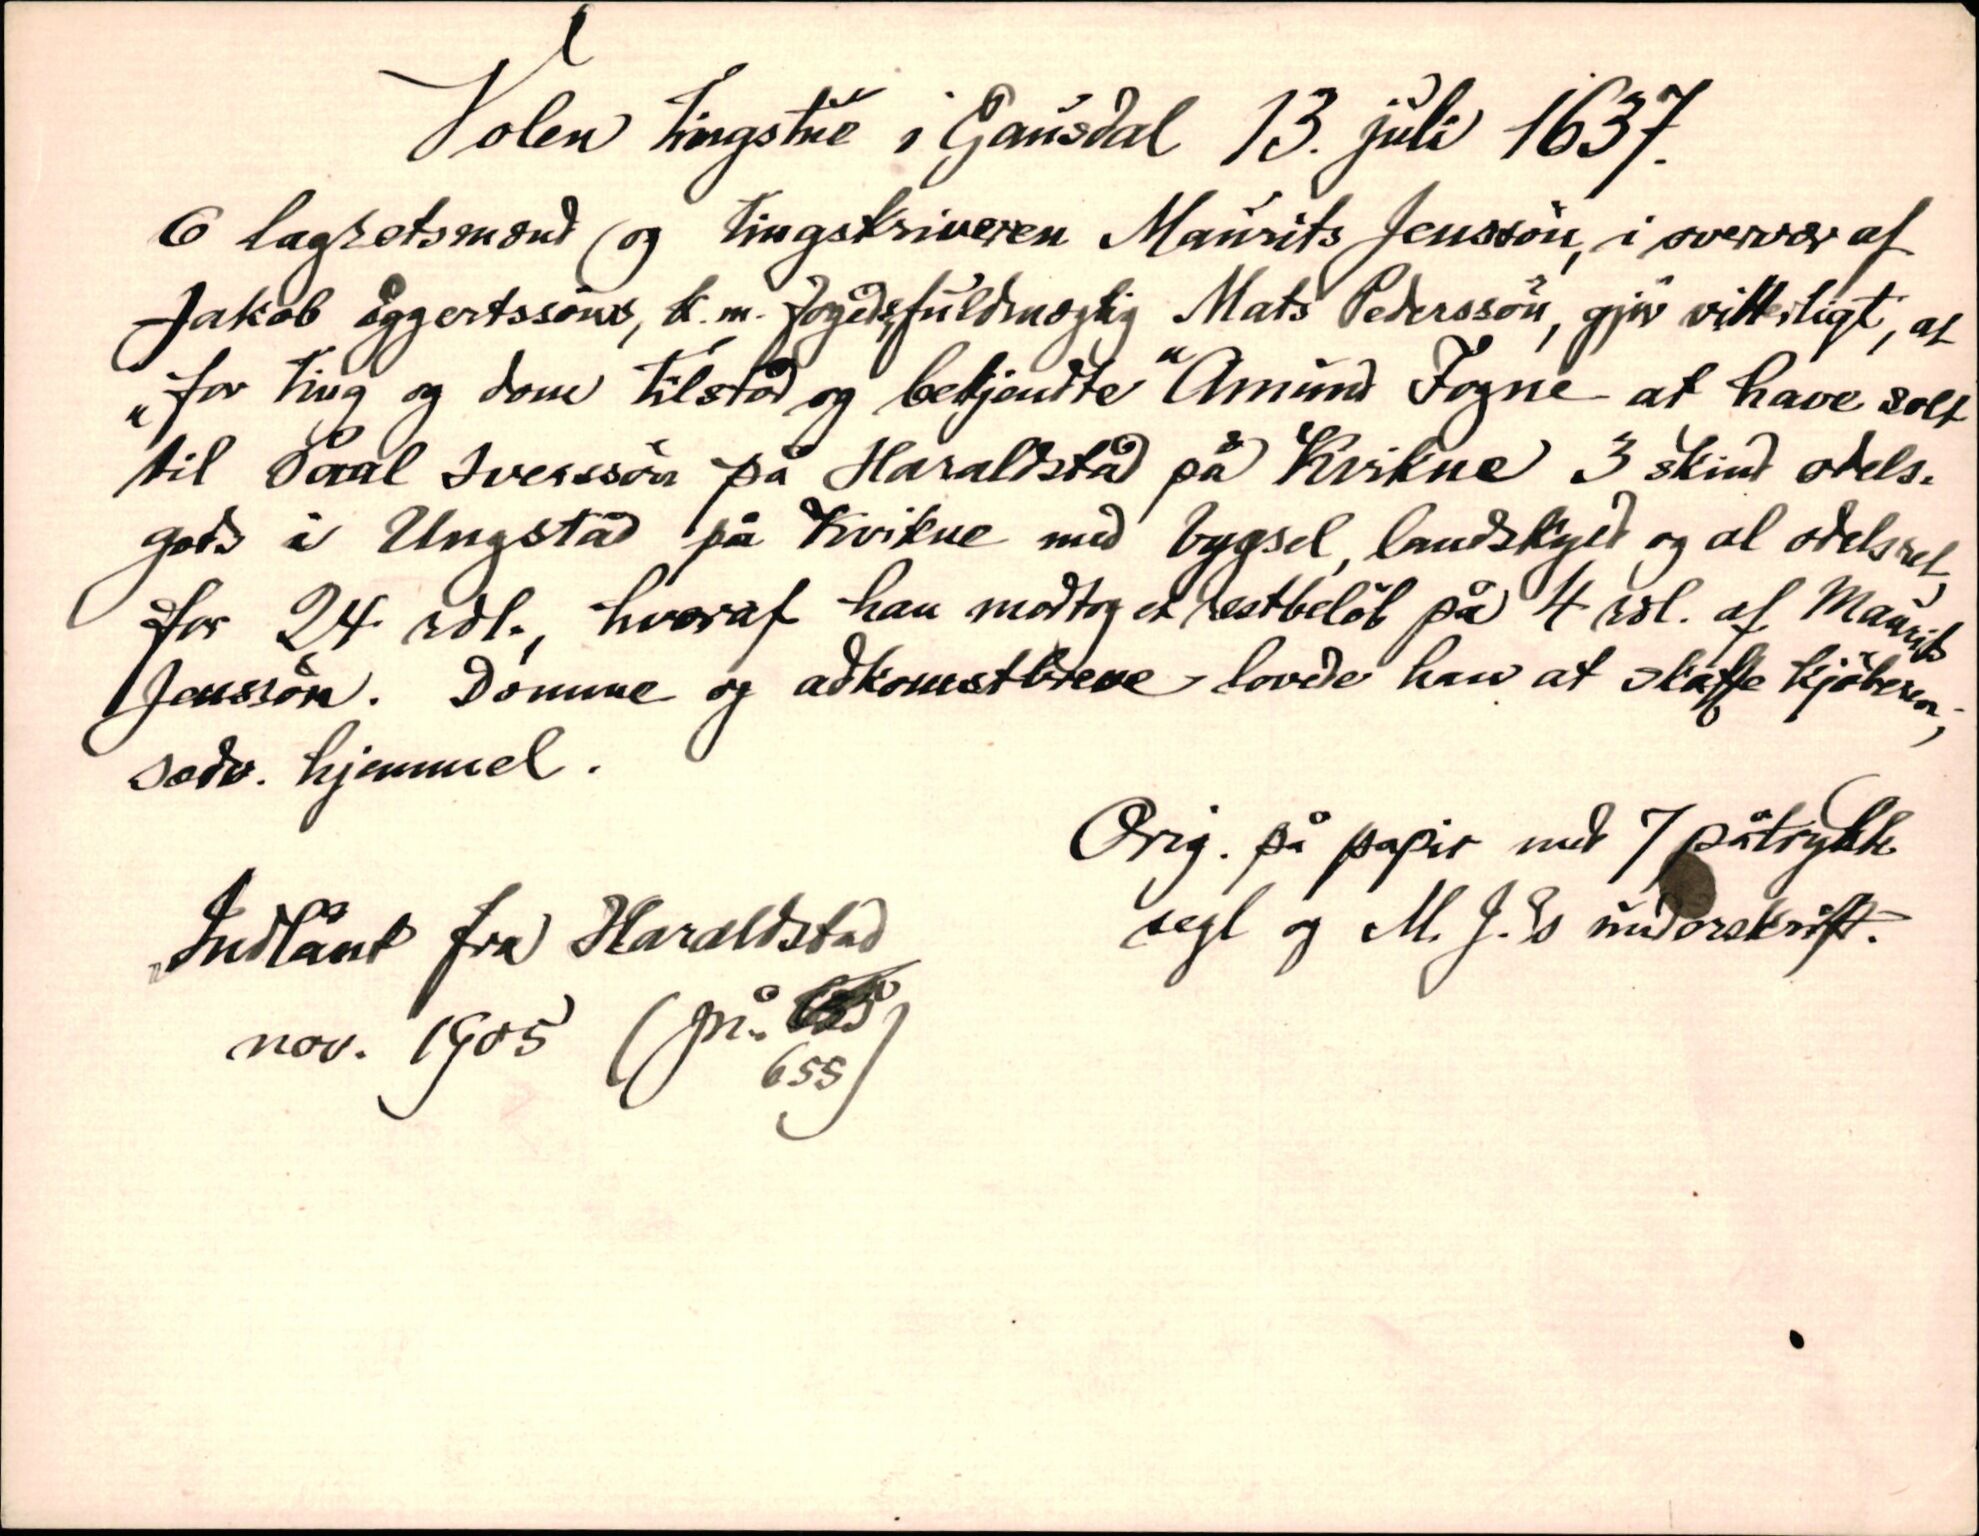 Volen tingstue i Gausdal 13. juli 1637.
6 lagretsmænd og tingskriveren Maurits Jenssön, i overvær af
Jakob Eggertssöns, k. m. fogeds, fuldmægtig Mats Pederssön, gjör vitterligt, at
"for ting og dom tilstod og bekjendte" Amund Fogne at have solt
til Paal Iverssön på Haraldstad på Kvikne 3 skind odels-
gods i Ungstad på Kvikne med bygsel, landskyld og al odelsret
for 24 rdl., hvoraf han modtog et restbelöb på 4 rdl. af Maurits
Jenssön. Domme og adkomstbreve lovde han at skaffe kjöberen;
sedv. hjemmel.
Orig. på papir med 7 påtrykk
segl og M. J.'s underskrift.
Indlånt fra Haraldstad
nov. 1905 (
655)